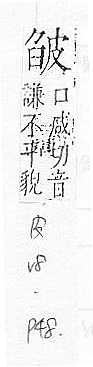 口咸切音
謙不平貌
皮
v8
.
P48.